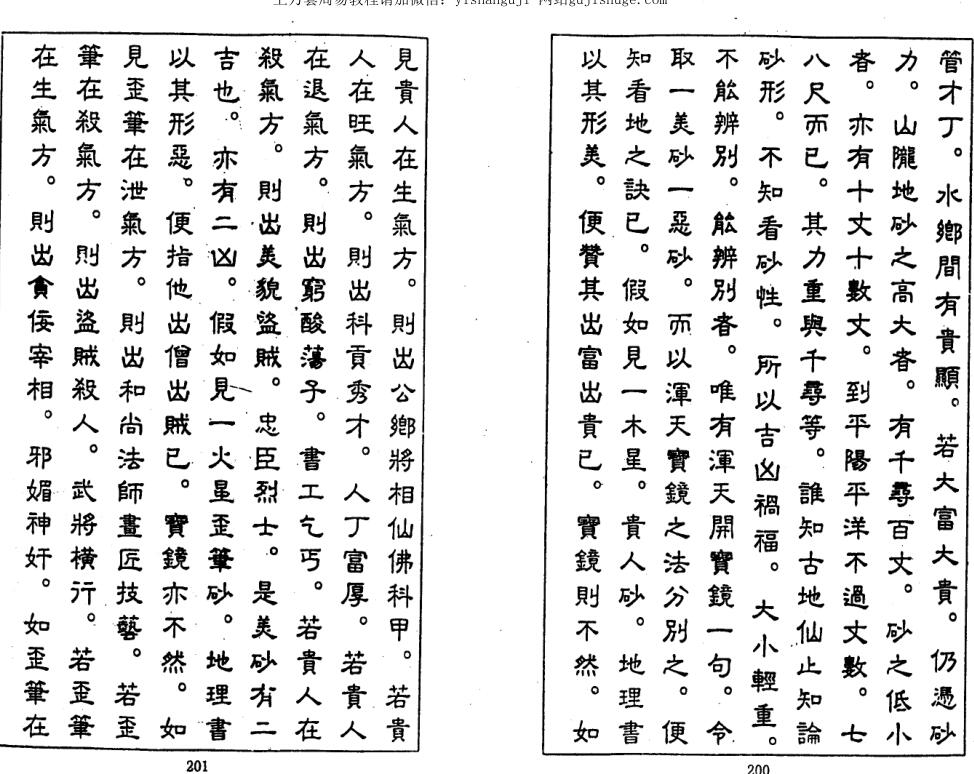 上万套周易教程请加微信：yishanguji 网站gujishuge.com
管才丁。水鄉間有貴顯。若大富大貴。仍憑砂
力。山隴地砂之高大者。有千尋百丈。砂之低小
者。亦有十丈十數丈。到平陽平洋不過丈數。七
八尺而已。其力重與千尋等。誰知古地仙止知論
砂形。不知看砂性。所以吉凶禍福。大小輕重。
不能辨別。能辨別者。唯有渾天開寶鏡一句。令
取一美砂一惡砂。而以渾天寶鏡之法分別之。便
知看地之訣已。假如見一木星。貴人砂。地理書
以其形美。便贊其出富出貴已。寶鏡則不然。如
200
見貴人在生氣方。則出公鄉將相仙佛科甲。若貴
人在旺氣方。則出科貢秀才。人丁富厚。若貴人
在退氣方。則出窮酸蕩子。書工乞丐。若貴人在
殺氣方。則出美貌盜賊。忠臣烈士。是美砂有二
吉也。亦有二凶。假如見一火星歪筆砂。地理書
以其形惡。便指他出僧出賊已。寶鏡亦不然。如
見歪筆在泄氣方。則出和尚法師畫匠技藝。若歪
筆在殺氣方。則出盜賊殺人。武將橫行。若歪筆
在生氣方。則出貪佞宰相。邪媚神奸。如歪筆在
201